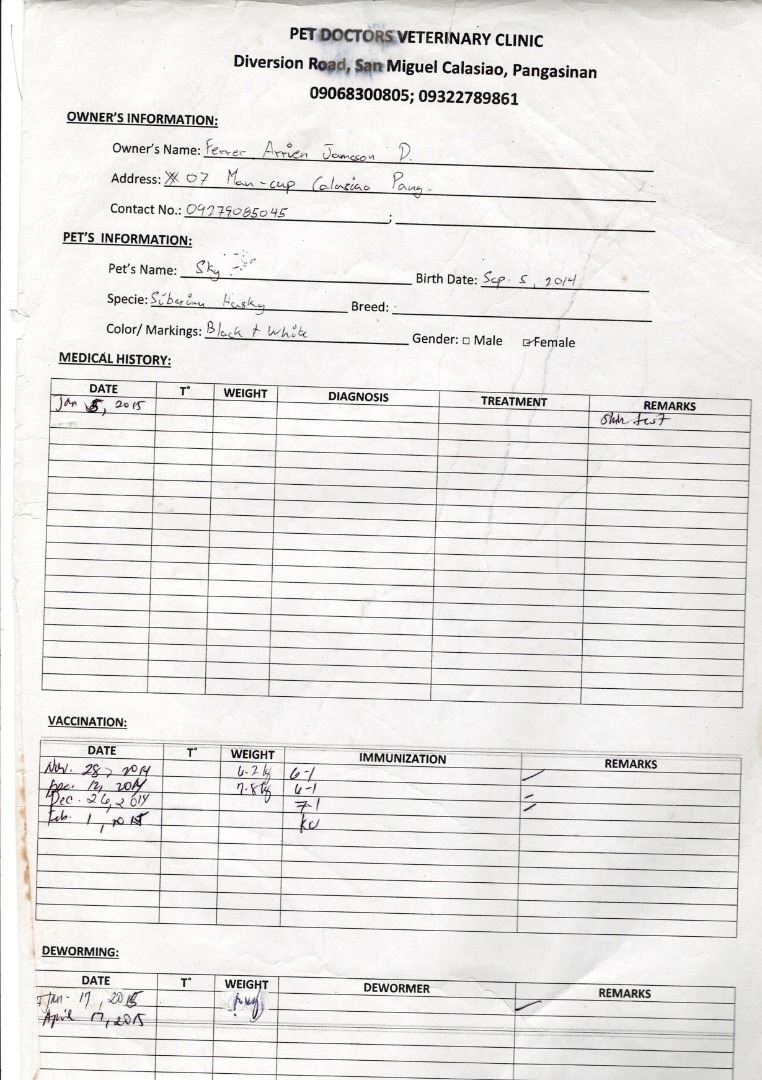 PET DOCTORS VETERINARY CLINIC
Diversion Road, San Miguel Calasiao, Pangasinan
09068300805; 09322789861
OWNER'S INFORMATION:
Owner's Name: Ferrer Arrien Jameson D.
Address: # 07 Man-cup Calasiao Pang.
Contact No.: 09279085045 ;
PET'S INFORMATION:
Pet's Name: Sky Birth Date: Sep. 5, 2014
Specie: Siberian Husky Breed:
Color/ Markings: Black + White Gender: Male Female
MEDICAL HISTORY:
DATE T° WEIGHT DIAGNOSIS TREATMENT REMARKS
Jan 5, 2015 test
VACCINATION:
DATE T° WEIGHT IMMUNIZATION REMARKS
Nov. 28, 2014 6.2 kg 6-1
Dec. 12, 2014 7.8 kg 6-1
Dec. 26, 2014 7-1
Feb. 1, 2015
DEWORMING:
DATE T° WEIGHT DEWORMER REMARKS
Jan- 17, 2015
April 17, 2015